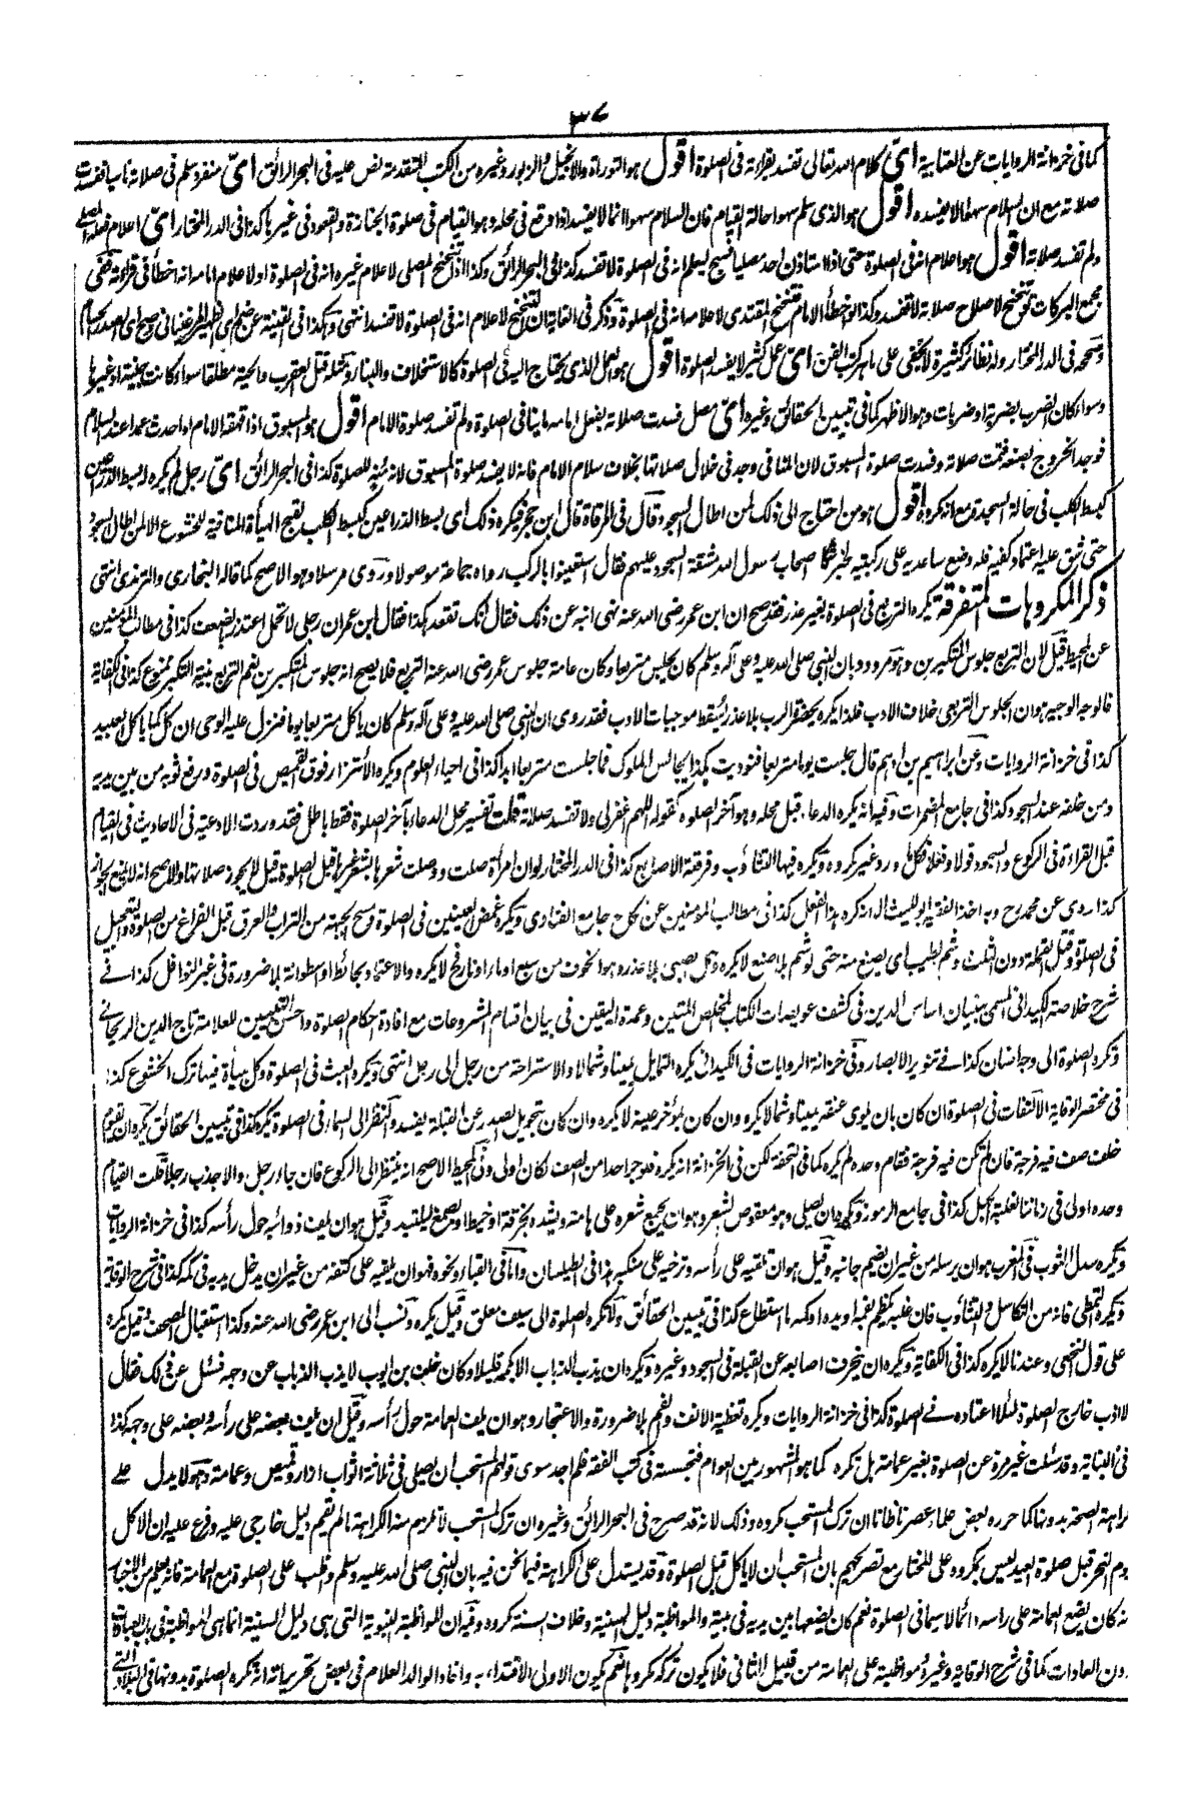 ٣٧
كما في خزانة الروايات عن العتابية اى كلام الله تعالى تفسد بقراءته في الصلوة اقول هو التوراة والانجيل والزبور وغيره من الكتب المتقدمة نص عليه في البحر الرائق اى منفرد سلم في صلاته ناسيا ففسدت
صلاته مع ان السلام سهوا لا يفسده اقول هو الذي سلم سهوا حالة القيام فان السلام سهوا انما لا يفسد اذا وقع في محله وهو القيام في صلوة الجنازة والقعود في غيرها كذا في الدر المختار اى اعلام فعله المصلى
ولم تفسد صلاته اقول هو اعلام انه في الصلوة حتى اذا استاذن احد مصليا فسبح ليعلم انه في الصلوة لا تفسد كذا في البحر الرائق وكذا اذا تنحنح المصلى لاعلام غيره انه في الصلوة او لاعلام امامه انه اخطأ في قراءته ففي
مجمع البركات لو تنحنح لاصلاح صلاته لا تفسد وكذا لو اخطأ الامام فتنحنح المقتدى لاعلامه انه في الصلوة وذكر في الغاية ان التنحنح لاعلام انه في الصلوة لا تفسد انتهى وهكذا في القنية عن
وصححه في الدر المختار وله نظائر كثيرة لا يخفى على ماهر كتب الفن اى عمل كثير لا يفسد الصلوة اقول هو العمل الذي يحتاج اليه في الصلوة كالاستخلاف والبناء ومثله قتل العقرب والحية مطلقا سواء كانت جنية او غيرها
وسواء كان الضرب بضربة او ضربات وهو الاظهر كما في تبيين الحقائق وغيره اى مصل فسدت صلاته بفعل امامه ما ينافى الصلوة ولم تفسد صلوة الامام اقول هو المسبوق اذا قهقه الامام او احدث عمدا عند السلام
فوجد الخروج بصنعه فتمت صلاته وفسدت صلوة المسبوق لان المنافى وجد في خلال صلاتها بخلاف سلام الامام فانه لا يفسد صلوة المسبوق لانه منه للصلوة كذا في البحر الرائق اى رجل لم يكره له بسط الذراعين
كبسط الكلب في حالة السجدة مع انه مكروه اقول هو من احتاج الى ذلك لمن اطال السجود قال في المرقاة قال ابن حجر فيكره ذلك اى بسط الذراعين كبسط الكلب لقبح الهيأة المنافية للخشوع الا لمن اطال السجود
حتى شق عليه اعتماد كفيه فله وضع ساعديه على ركبتيه لخبر شكا اصحاب رسول الله مشقة السجود عليهم فقال استعينوا بالركب رواه جماعة موصولا وروى مرسلا وهو الاصح كما قاله البخارى والترمذى انتهى
ذكر المكروهات المتفرقة يكره التربع في الصلوة بغير عذر فقد صح ان ابن عمر رضى الله عنه نهى ابنه عن ذلك فقال انك تقعد هكذا فقال ابن عمر ان رجلى لا تحملانى اعتذر بالضعف كذا في مطالب المؤمنين
عن المحيط قيل لان التربع جلوس المتكبرين وهو مردود بان النبي صلى الله عليه وعلى آله وسلم كان يجلس متربعا وكان عامة جلوس عمر رضى الله عنه التربع فلا يصح انه جلوس المتكبرين نعم التربع بنية التكبر ممنوع كذا في الكفاية
فالوجه الوجيه هو ان الجلوس التربعى خلاف الادب فلذا يكره بحضرة الرب بلا عذر يسقط موجبات الادب فقد روى ان النبي صلى الله عليه وعلى آله وسلم كان ياكل متربعا يوما فنزل عليه الوحى ان كل كما ياكل العبيد
كذا في خزانة الروايات وعن ابراهيم بن ادهم قال جلست يوما متربعا فنوديت هكذا يجالس الملوك فما جلست متربعا ابدا كذا في احياء العلوم ويكره الاتزار فوق القميص في الصلوة ورفع ثوبه من بين يديه
ومن خلفه عند السجود كذا في جامع المضمرات وفيه انه يكره الدعاء قبل محله وهو آخر الصلوة كقوله اللهم اغفر لى ولا تفسد صلاته قلت تفسير محل الدعاء بآخر الصلوة فقط باطل فقد وردت الادعية في الاحاديث في القيام
قبل القراءة في الركوع والسجود قولا وفعلا وغير مكروه ويكره فيها التثاؤب وفرقعة الاصابع كذا في الدر المختار لو ان امرأة صلت ووصلت شعرها بشعر غيرها قبل الصلوة قيل لا يجوز صلاتها والاصح انه لا يمنع الجواز
كذا روى عن محمد رح وبه اخذ الفقيه ابو الليث الا انه كره هذا الفعل كذا في مطالب المؤمنين عن نكاح جامع الفتاوى ويكره غمض العينين في الصلوة ومسح الجبهة من التراب والعرق قبل الفراغ من الصلوة والتعجيل
في الصلوة وقتل القملة دون الثلث وشم الطيب اى بصنع منه حتى لو شم بلا صنع لا يكره وحمل الصبى بلا عذر وهو الخوف من سبع او ماء او نار فح لا يكره والاعتماد بحائط او اسطوانة بلا ضرورة في غير النوافل كذا في
شرح خلاصة الكيدانى المسمى ببنيان اساس الدين في كشف عويصات الكتاب لمخلص المتين وعمدة اليقين في بيان اقسام المشروعات مع افادة احكام الصلوة واحسن التعيين للعلامة تاج الدين الريحانى
وتكره الصلوة الى وجه انسان كذا في تنوير الابصار وفي خزانة الروايات في الكيدانى يكره التمايل يمينا وشمالا والاستراحة من رجل الى رجل انتهى ويكره العبث في الصلوة وكل هيأة فيها ترك الخشوع كذا
في مختصر الوقاية الالتفات في الصلوة ان كان بان يلوى عنقه يمينا وشمالا يكره وان كان بمؤخر عينه لا يكره وان كان بتحويل الصدر عن القبلة يفسد والنظر الى السماء في الصلوة يكره كذا في تبيين الحقائق يكره ان يقوم
خلف صف فيه فرجة فان لم تكن فيه فرجة فقام وحده لم يكره كما في التحفة لكن في الخزانة انه يكره فلو جر احدا من الصف لكان اولى وفي المحيط الاصح انه ينتظر الى الركوع فان جاء رجل والا جذب رجلا قلت القيام
وحده اولى في زماننا لغلبة الجهل كذا في جامع الرموز ويكره ان يصلى وهو معقوص الشعر وهو ان يجمع شعره على هامته ويشده بخرقة او خيط او بصمغ ليلتبد وقيل هو ان يلف ذوائبه حول رأسه كذا في خزانة الروايات
ويكره سدل الثوب في المغرب هو ان يرسله من غير ان يضم جانبيه وقيل هو ان تلقيه على رأسه وترخيه على منكبيه هذا في الطيلسان واما في القباء ونحوه فهو ان يلقيه على كتفه من غير ان يدخل يديه في كمه كذا في شرح الوقاية
ويكره التمطى فانه من التكاسل والتثاؤب فان غلبه كظم فمه او يده او كمه ما استطاع كذا في تبيين الحقائق ولا تكره الصلوة الى سيف معلق وقيل يكره ونسب الى ابن عمر رضى الله عنه وكذا استقبال المصحف وقيل يكره
على قول النخعى وعندنا لا يكره كذا في الكفاية ويكره ان يحرف اصابعه عن القبلة في السجود وغيره ويكره ان يذب الذباب الا بكمه قليلا وكان خلف بن ايوب لا يذب الذباب عن وجهه فسئل عن ذلك فقال
لا اذب خارج الصلوة لئلا اعتاده في الصلوة كذا في خزانة الروايات ويكره تغطية الانف والفم بلا ضرورة والاعتجار وهو ان يلف العمامة حول رأسه وقيل ان يلف بعضه على رأسه وبعضه على وجهه كذا
في البناية وقد سئلت غير مرة عن الصلوة بغير عمامة هل تكره كما هو المشهور بين العوام فتجسسته في كتب الفقه فلم اجد سوى قولهم المستحب ان يصلى في ثلثة اثواب ازار وقميص وعمامة وهو لا يدل على
كراهة الصحة بدونها كما حرره بعض علماء عصرنا ظانا ان ترك المستحب مكروه وذلك لانه قد صرح في البحر الرائق وغيره ان ترك المستحب لا تلزم منه الكراهة ما لم يقم دليل خارجى عليه وفرع عليه ان الاكل
يوم النحر قبل صلوة العيد ليس بمكروه على المختار مع تصريحهم بان المستحب ان لا ياكل قبل الصلوة وقد يستدل على الكراهة فيما نحن فيه بان النبي صلى الله عليه وسلم واظب على الصلوة مع العمامة فانه يعلم من الاخبار
انه كان يضع العمامة على راسه دائما لا سيما في الصلوة نعم كان يضعها بين يديه في بيته والمواظبة دليل السنية وخلاف السنة مكروه وفيه ان المواظبة النبوية التى هى دليل السنية انما هى المواظبة في باب العبادات
دون العادات كما في شرح الوقاية وغيره ومواظبته على العمامة من قبيل الثانى فلا يكون تركه مكروها نعم يكون الاولى الاقتداء به وافاد الوالد العلام في بعض تحريراته انه تكره الصلوة بدونها في البلاد التى